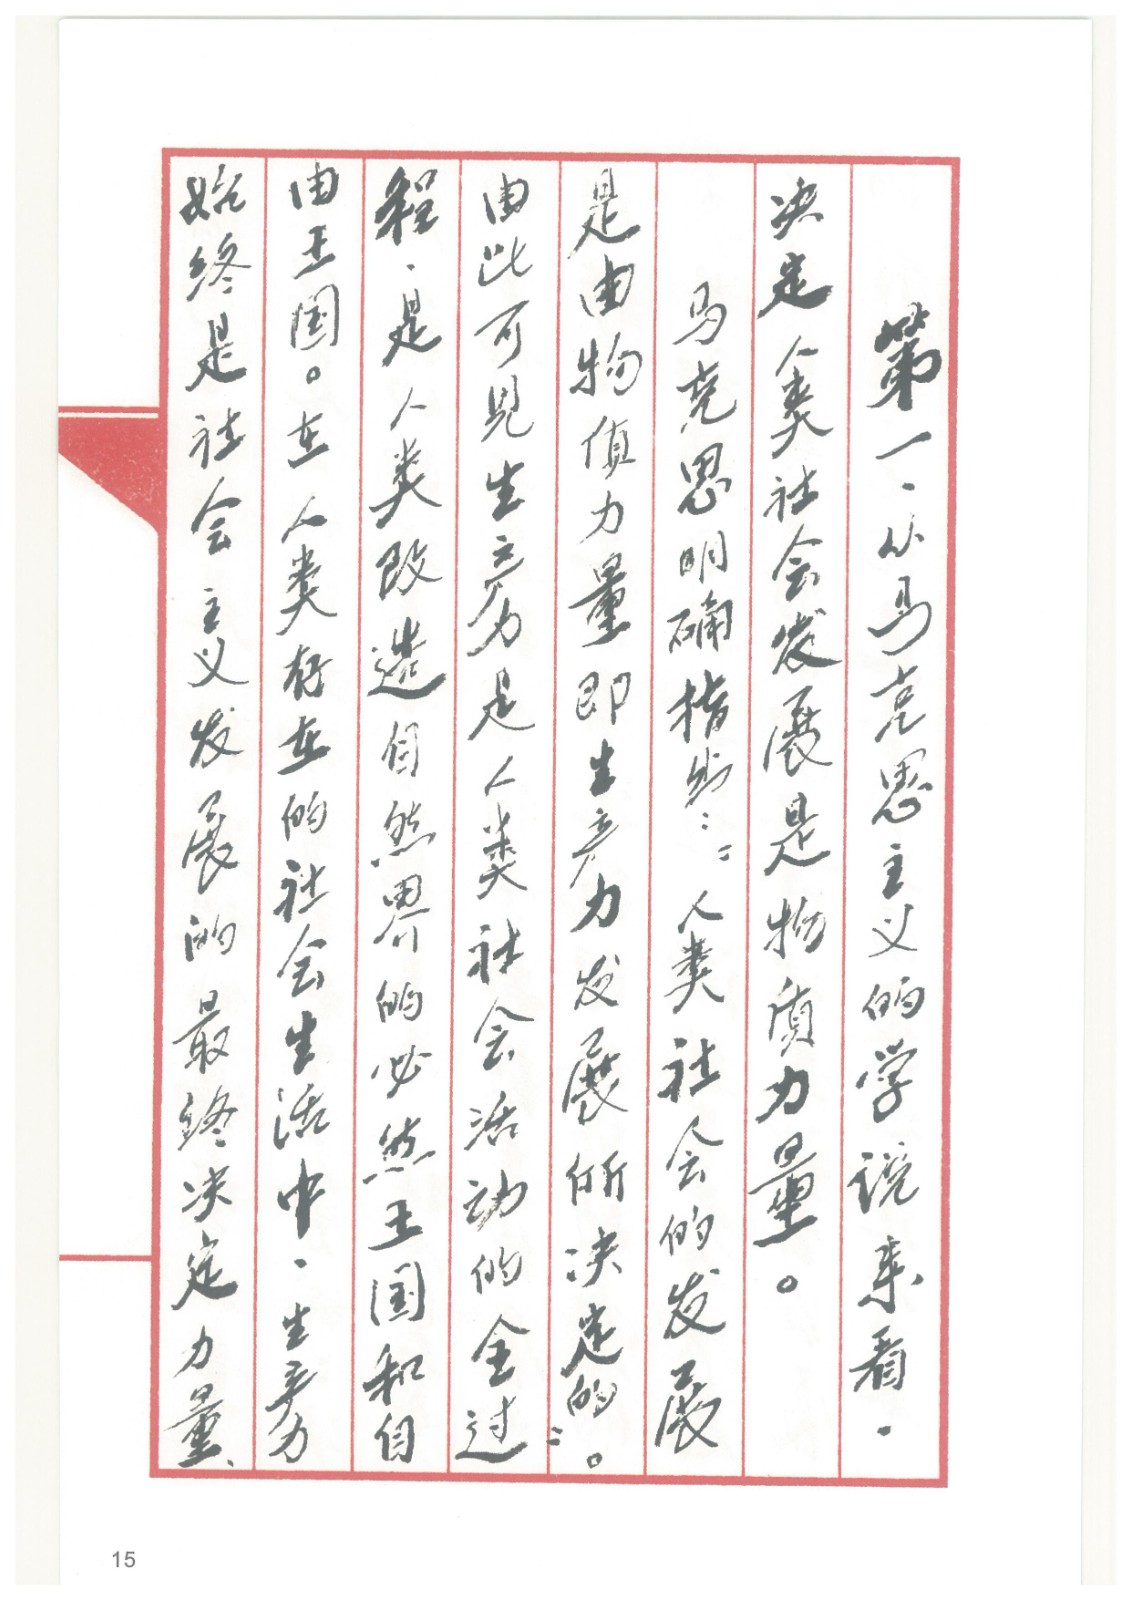 第一、从马克思主义的学说来看、
决定人类社会发展是物质力量。
马克思明确指出："人类社会的发展
是由物质力量即生产力发展所决定的。"
由此可见生产力是人类社会活动的全过
程、是人类改造自然界的必然王国和自
由王国。在人类存在的社会生活中、生产力
始终是社会主义发展的最终决定力量、
15